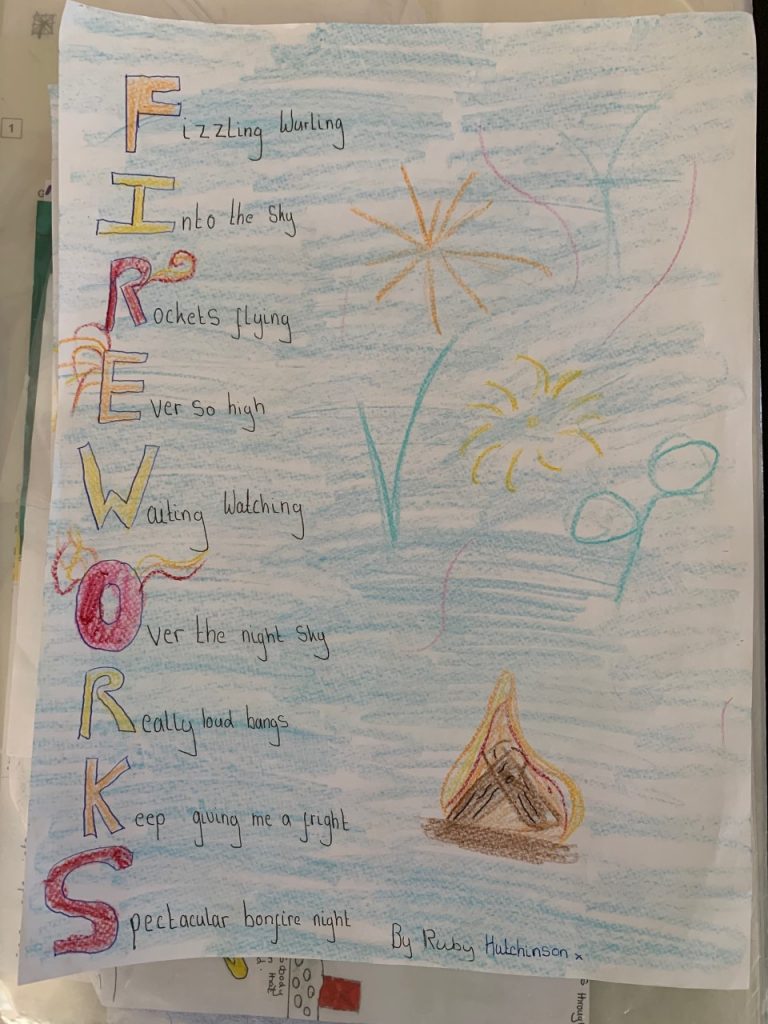 1
Fizzling Wurling
Into the sky
Rockets flying
Ever so high
Waiting Watching
Over the night sky
Really loud bangs
Keep giving me a fright
Spectacular bonfire night
By Ruby Hutchinson x